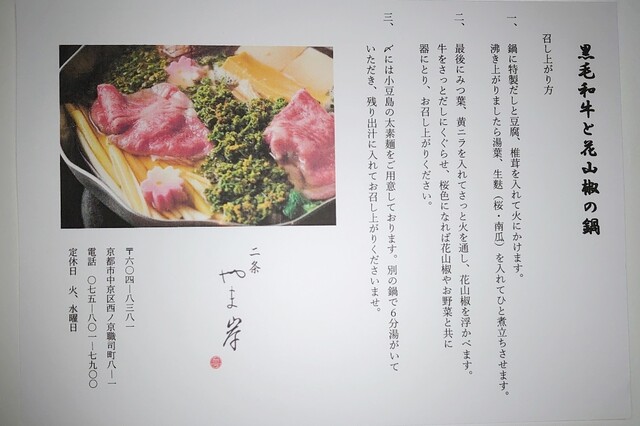 黒毛和牛と花山椒の鍋
召し上がり方
一、鍋に特製だしと豆腐、椎茸を入れて火にかけます。
沸き上がりましたら湯葉、生麩（桜・南瓜）を入れてひと煮立ちさせます。
二、最後にみつ葉、黄ニラを入れてさっと火を通し、花山椒を浮かべます。
牛をさっとだしにくぐらせ、桜色になれば花山椒やお野菜と共に
器にとり、お召し上がりください。
三、〆には小豆島の太素麺をご用意しております。別の鍋で６分湯がいて
いただき、残り出汁に入れてお召し上がりくださいませ。
二条
やま岸
〒六〇四ー八三八一
京都市中京区西ノ京職司町八ー一
電話　〇七五ー八〇一ー七九〇〇
定休日　火、水曜日